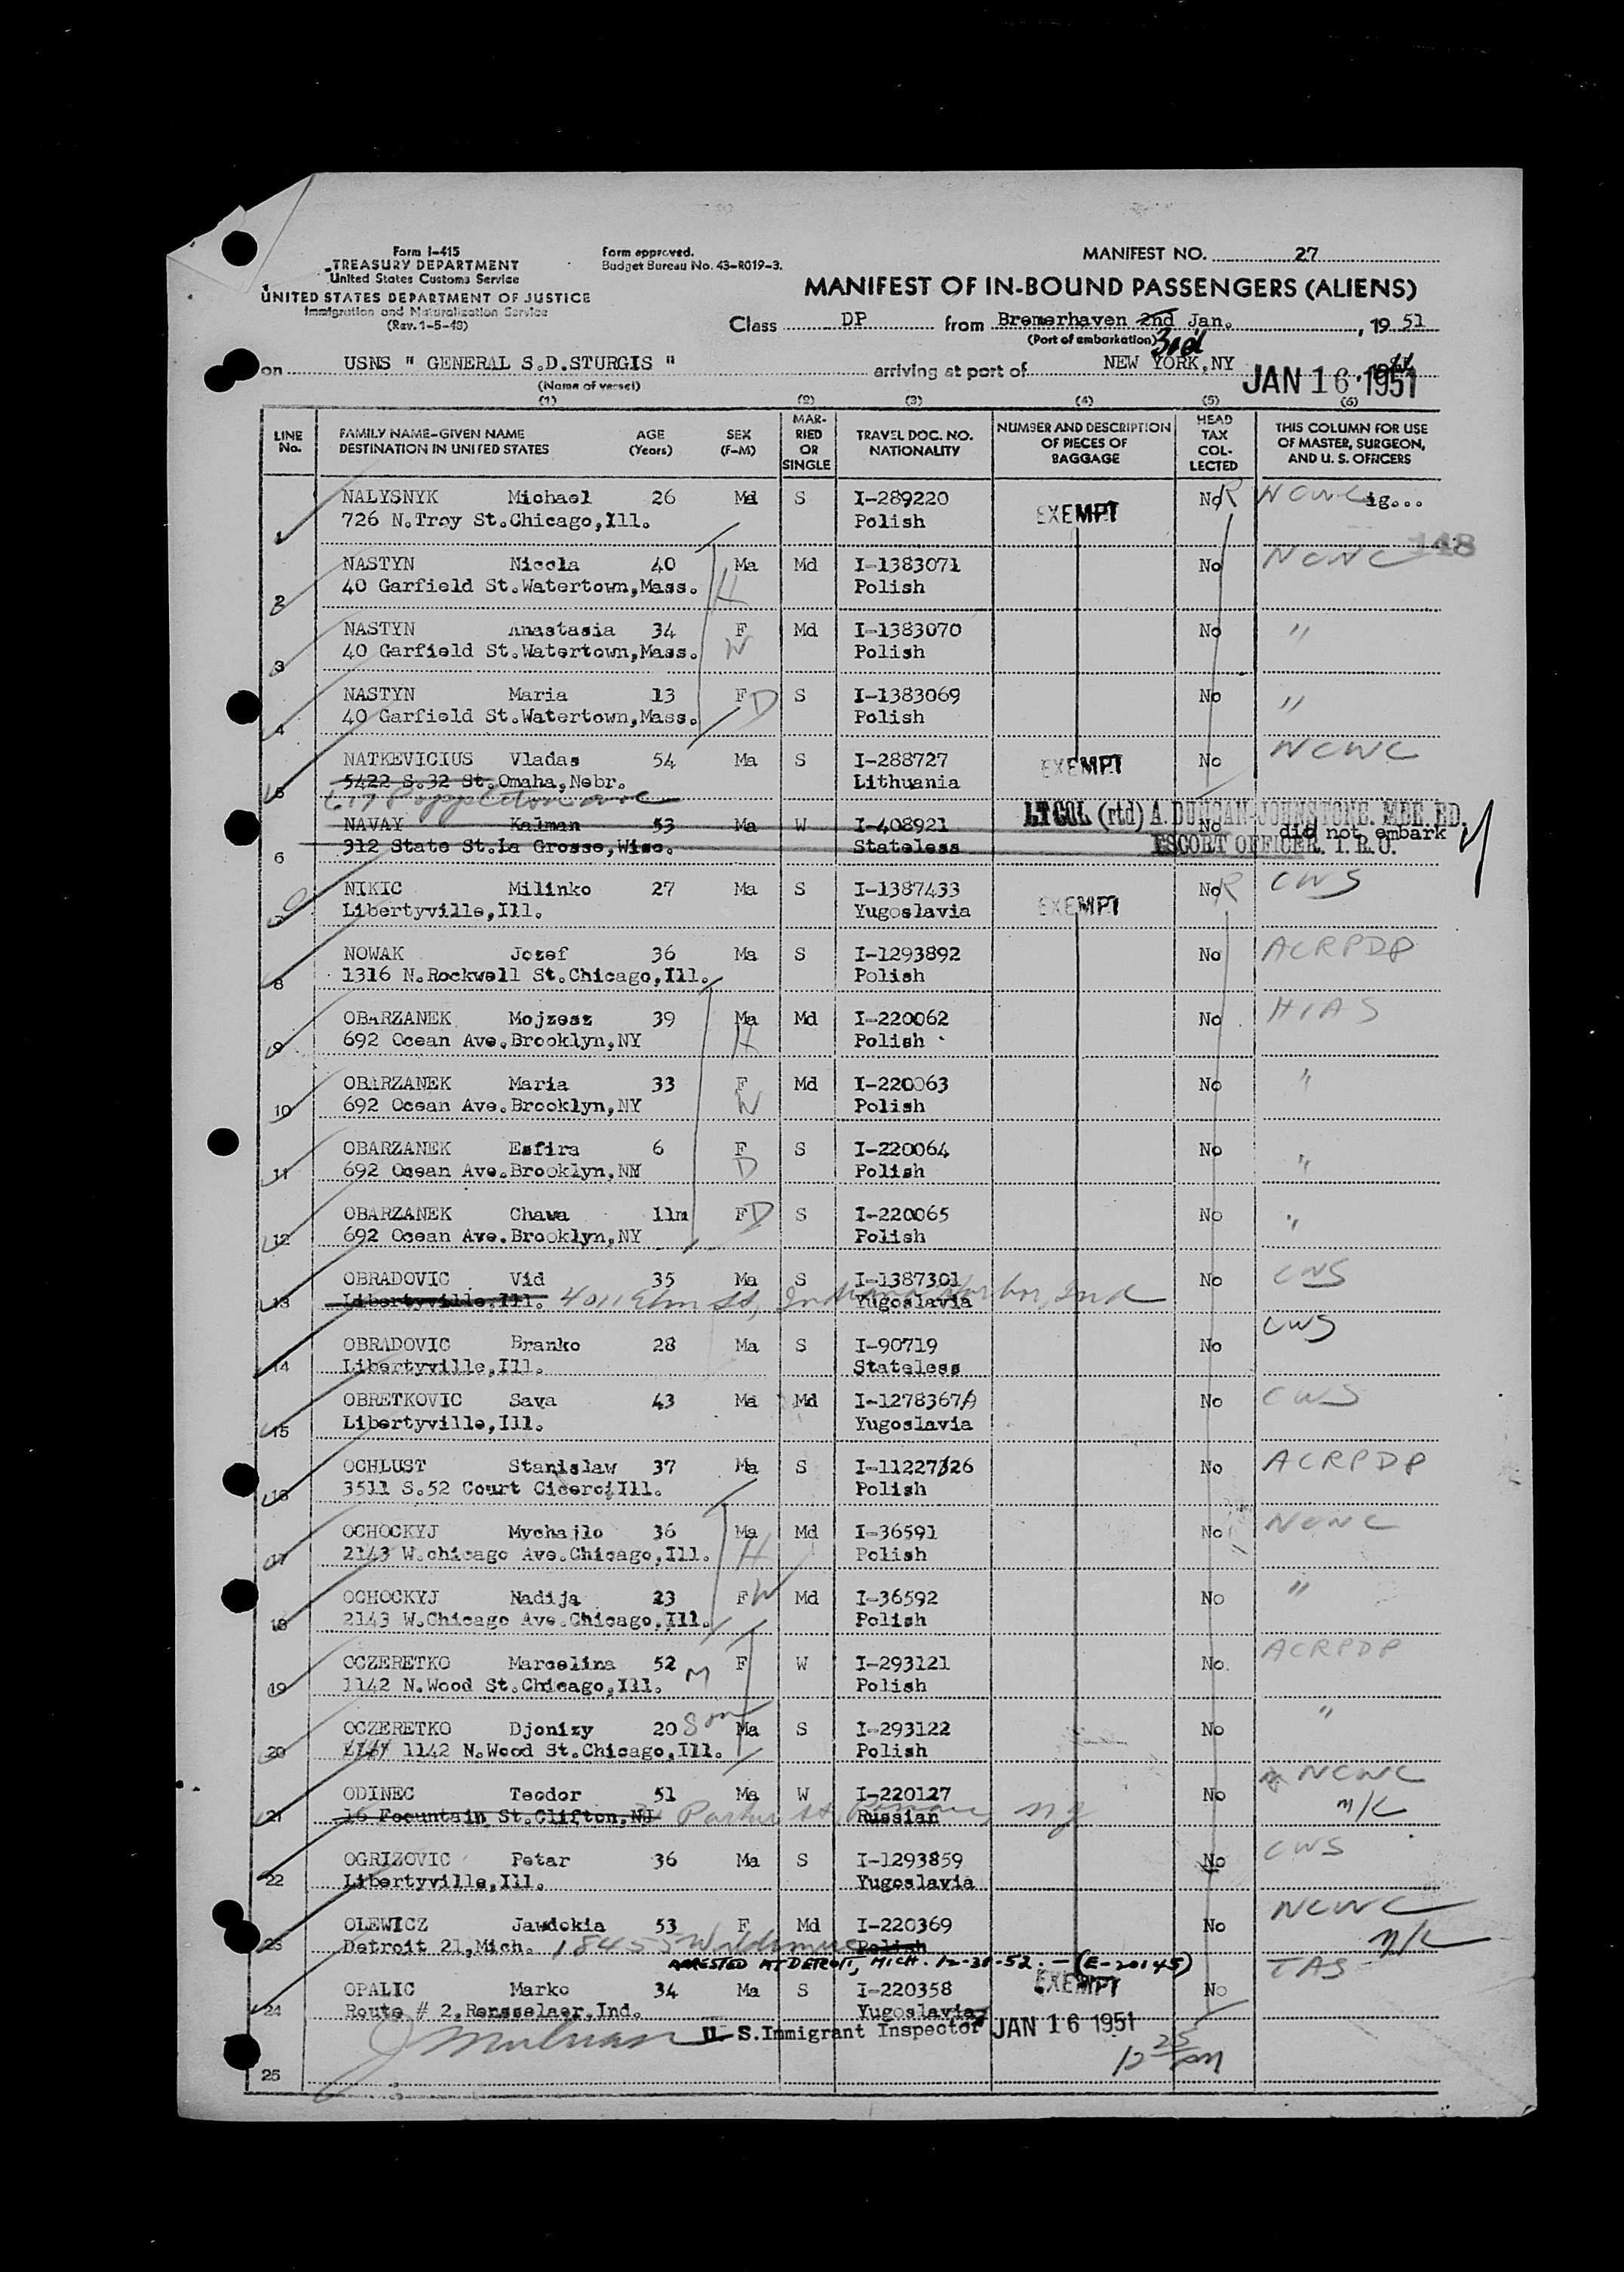 Form I-415
TREASURY DEPARTMENT
United States Customs Service
UNITED STATES DEPARTMENT OF JUSTICE
Immigration and Naturalization Service
(Rev. 1-5-49)
Form approved.
Budget Bureau No. 43-R019-3.
MANIFEST NO. 27
MANIFEST OF IN-BOUND PASSENGERS (ALIENS)
Class DP from Bremerhaven 2nd Jan. , 19 51
(Port of embarkation) 3rd
on USNS " GENERAL S.D.STURGIS " arriving at port of NEW YORK,NY JAN 16 1951
(Name of vessel)
(1) (2) (3) (4) (5) (6)
LINE No. FAMILY NAME–GIVEN NAME DESTINATION IN UNITED STATES AGE (Years) SEX (F–M) MARRIED OR SINGLE TRAVEL DOC. NO. NATIONALITY NUMBER AND DESCRIPTION OF PIECES OF BAGGAGE HEAD TAX COLLECTED THIS COLUMN FOR USE OF MASTER, SURGEON, AND U. S. OFFICERS
1 NALYSNYK Michael 26 Md S I-289220 EXEMPT No R NCWC ig...
726 N.Troy St.Chicago,Ill. Polish
148
2 NASTYN Nicola 40 Ma Md I-1383071 No NCWC
40 Garfield St.Watertown,Mass. H Polish
3 NASTYN Anastasia 34 F Md I-1383070 No "
40 Garfield St.Watertown,Mass. W Polish
4 NASTYN Maria 13 F D S I-1383069 No "
40 Garfield St.Watertown,Mass. Polish
5 NATKEVICIUS Vladas 54 Ma S I-288727 EXEMPT No NCWC
5422 S.32 St.Omaha,Nebr. Lithuania
LT COL (rtd) A. DUNCAN-JOHNSTONE. MBE. ED.
6 NAVAY Kalman 53 Ma W I-408921 No did not embark
912 State St.La Grosse,Wisc. Stateless ESCORT OFFICER. I. R. O.
7 NIKIC Milinko 27 Ma S I-1387433 EXEMPT No R CWS
Libertyville,Ill. Yugoslavia
8 NOWAK Jozef 36 Ma S I-1293892 No ACRPDP
1316 N.Rockwell St.Chicago,Ill. Polish
9 OBARZANEK Mojzesz 39 Ma Md I-220062 No HIAS
692 Ocean Ave.Brooklyn,NY H Polish
10 OBARZANEK Maria 33 F Md I-220063 No "
692 Ocean Ave.Brooklyn,NY W Polish
11 OBARZANEK Esfira 6 F S I-220064 No "
692 Ocean Ave.Brooklyn,NM D Polish
12 OBARZANEK Chawa 11m F D S I-220065 No "
692 Ocean Ave.Brooklyn,NY Polish
13 OBRADOVIC Vid 35 Ma S I-1387301 No CWS
Libertyville,Ill. 4011 Elm St, Indiana Harbor, Ind Yugoslavia
14 OBRADOVIC Branko 28 Ma S I-90719 No CWS
Libertyville,Ill. Stateless
15 OBRETKOVIC Sava 43 Ma Md I-1278367A No CWS
Libertyville,Ill. Yugoslavia
16 OCHLUST Stanislaw 37 Ma S I-11227326 No ACRPDP
3511 S.52 Court Cicero,Ill. Polish
17 OCHOCKYJ Mychajlo 36 Ma Md I-36591 No NCWC
2143 W.chicago Ave.Chicago,Ill. H Polish
18 OCHOCKYJ Nadija 23 F W Md I-36592 No "
2143 W.Chicago Ave.Chicago,Ill. Polish
19 OCZERETKO Marcelina 52 F W I-293121 No ACRPDP
1142 N.Wood St.Chicago,Ill. M Polish
20 OCZERETKO Djonizy 20 Son Ma S I-293122 No "
1142 N.Wood St.Chicago,Ill. Polish
21 ODINEC Teodor 51 Ma W I-220127 No NCWC
16 Fountain St.Clifton,NJ Russian n/c
22 OGRIZOVIC Petar 36 Ma S I-1293859 No CWS
Libertyville,Ill. Yugoslavia
23 OLEWICZ Jawdokia 53 F Md I-220369 No NCWC
Detroit 21,Mich. 18455 Wildemere Polish n/c
ARRESTED AT DETROIT, MICH. 12-31-52. — (E-20145)
24 OPALIC Marko 34 Ma S I-220358 EXEMPT No TAS
Route # 2,Rensselaer,Ind. Yugoslavia
U. S.Immigrant Inspector JAN 16 1951
12 25 pm
25